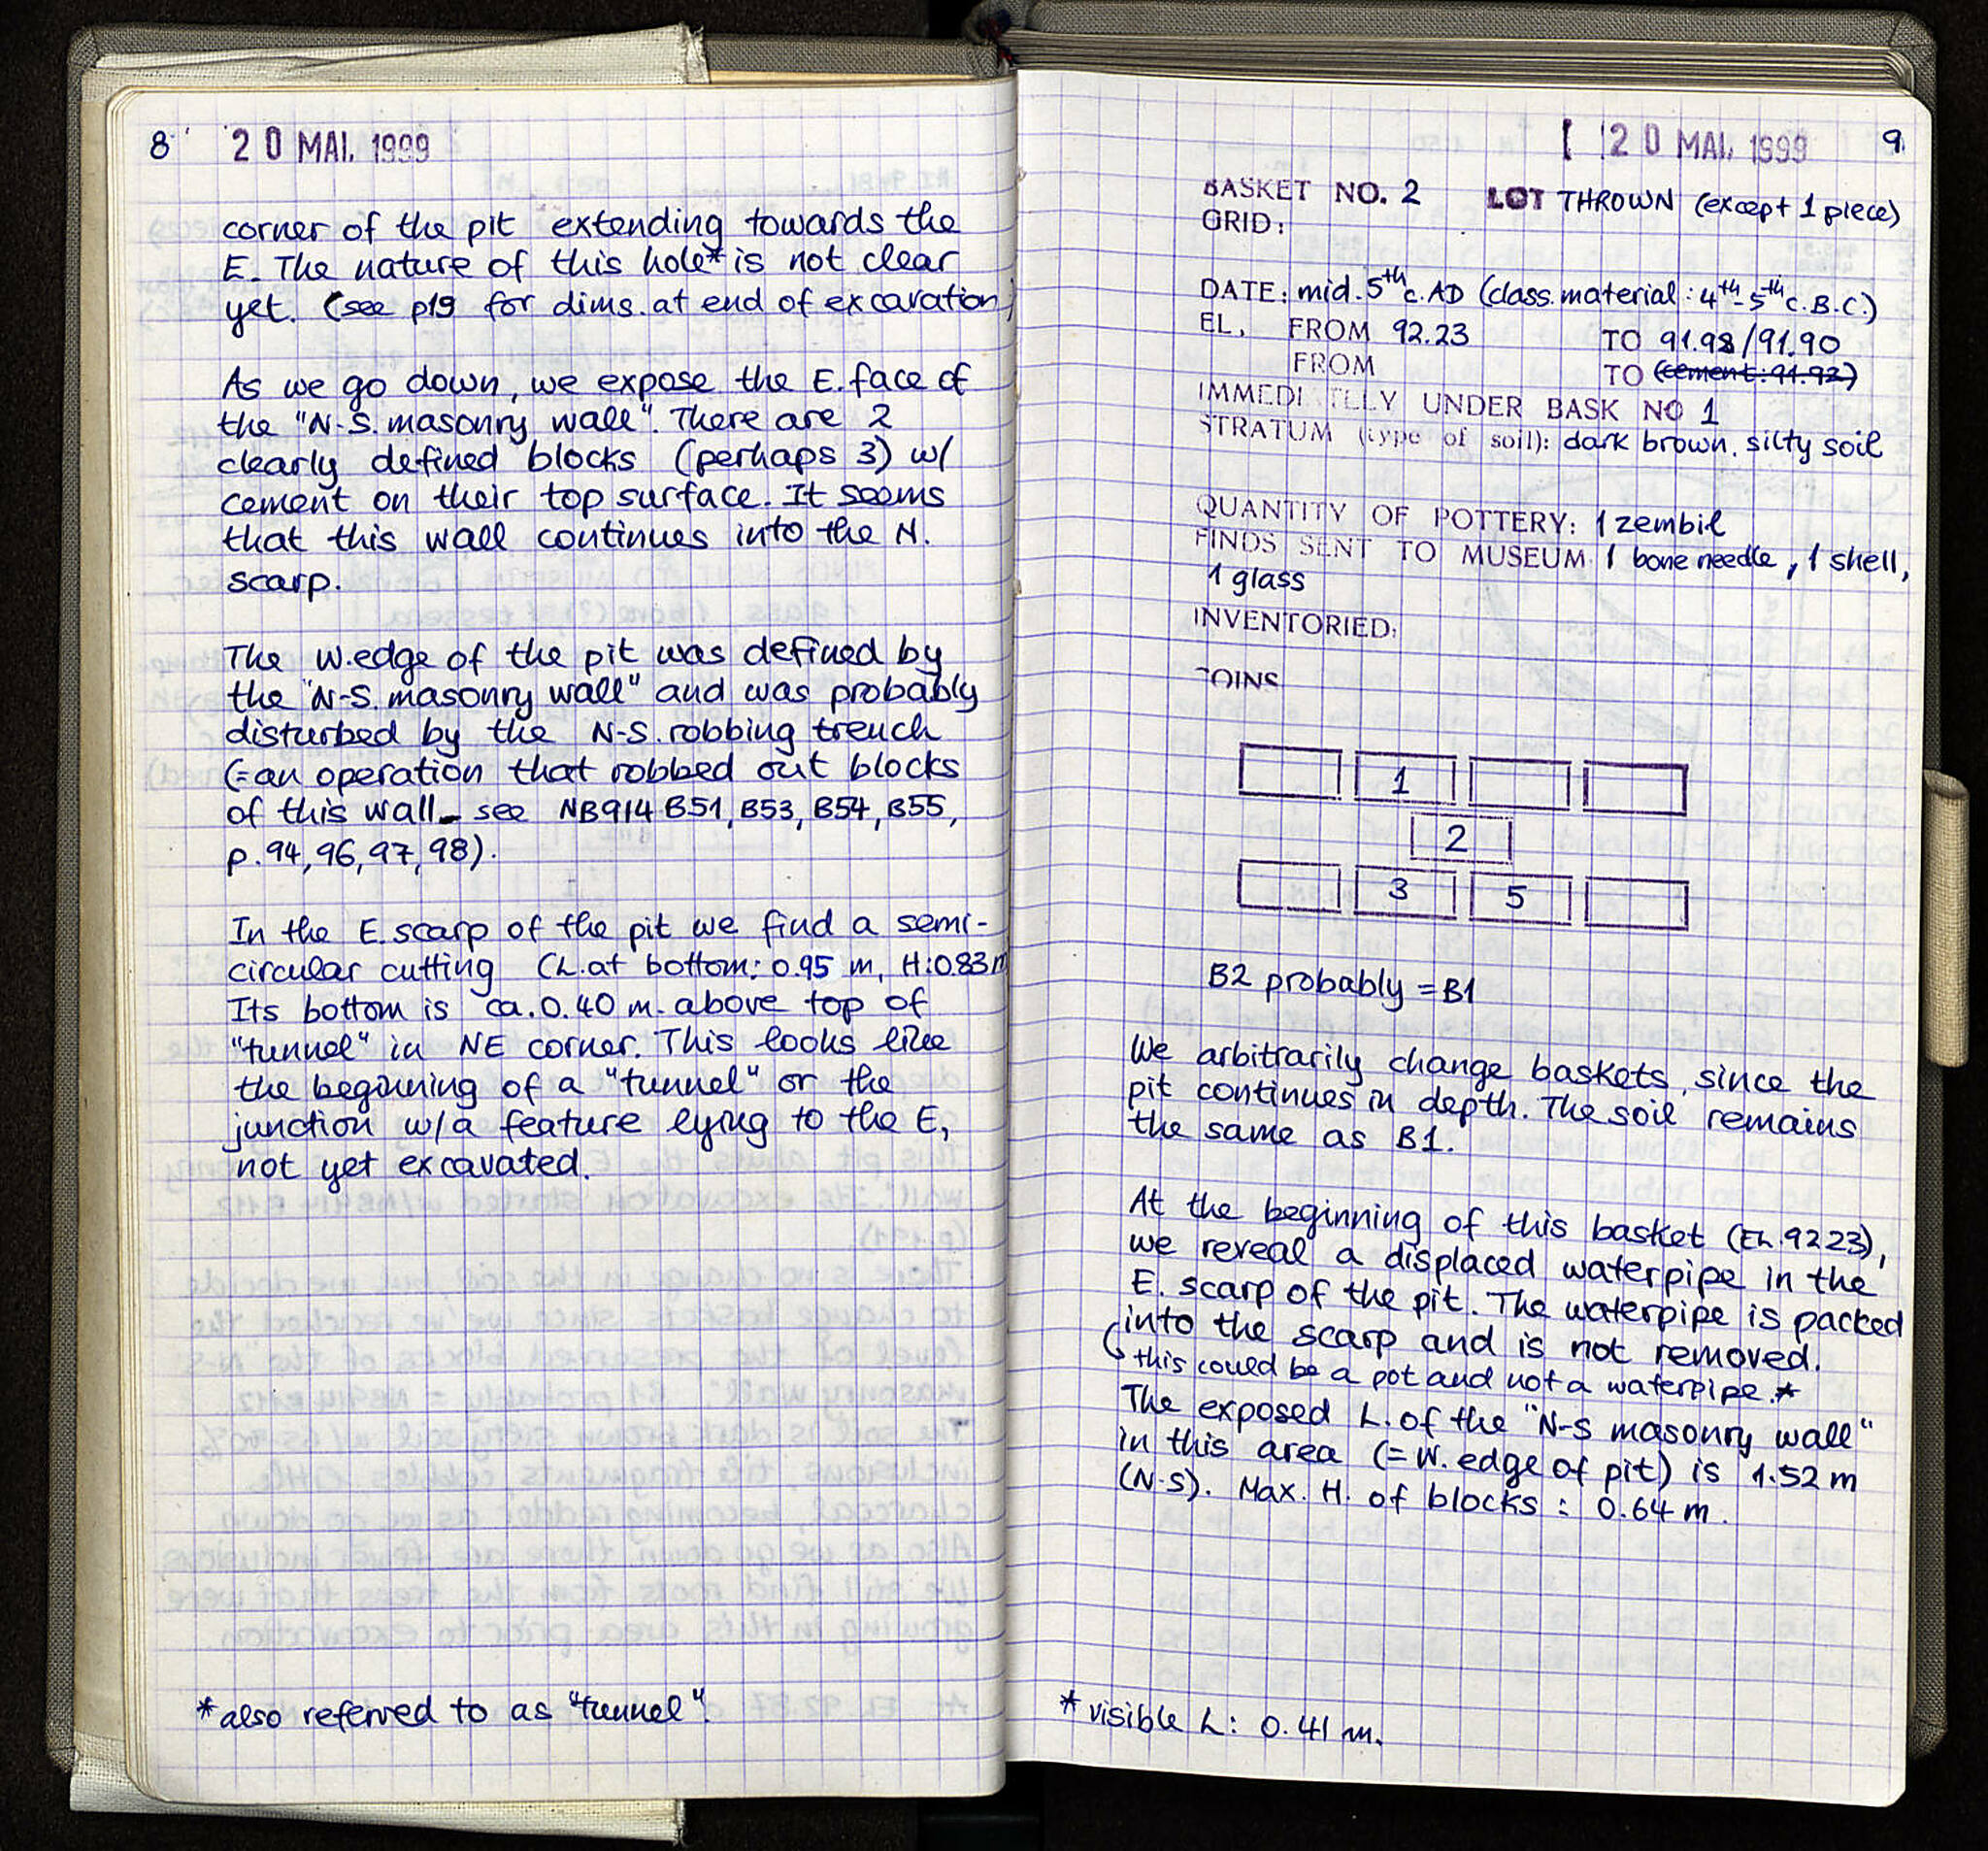 8 20 MAI. 1999
corner of the pit extending towards the
E. The nature of this hole* is not clear
yet. (see p19 for dims. at end of excavation)
As we go down, we expose the E. face of
the "N-S. masonry wall". There are 2
clearly defined blocks (perhaps 3) w/
cement on their top surface. It seems
that this wall continues into the N.
scarp.
The W. edge of the pit was defined by
the "N-S. masonry wall" and was probably
disturbed by the N-S. robbing trench
(=an operation that robbed out blocks
of this wall_ see NB914 B51, B53, B54, B55,
p. 94, 96, 97, 98).
In the E. scarp of the pit we find a semi-
circular cutting (L. at bottom: 0.95 m, H: 0.83 m
Its bottom is ca. 0.40 m. above top of
"tunnel" in NE corner. This looks like
the beginning of a "tunnel" or the
junction w/a feature lying to the E,
not yet excavated.
*also referred to as "tunnel".
20 MAI. 1999 9.
BASKET NO. 2 LOT THROWN (except 1 piece)
GRID:
DATE: mid. 5th c. AD (class. material: 4th-5th c. B.C.)
EL. FROM 92.23 TO 91.98/91.90
FROM TO (cement: 91.92)
IMMEDIATELLY UNDER BASK NO 1
STRATUM (type of soil): dark brown. silty soil
QUANTITY OF POTTERY: 1 zembil
FINDS SENT TO MUSEUM 1 bone needle, 1 shell,
1 glass
INVENTORIED:
COINS
1
2
3 5
B2 probably = B1
We arbitrarily change baskets, since the
pit continues in depth. The soil remains
the same as B1.
At the beginning of this basket (EL. 92.23),
we reveal a displaced waterpipe in the
E. scarp of the pit. The waterpipe is packed
into the scarp and is not removed.
this could be a pot and not a waterpipe.*
The exposed L. of the "N-S masonry wall"
in this area (= W. edge of pit) is 1.52 m
(N-S). Max. H. of blocks: 0.64 m.
*visible L: 0.41 m.